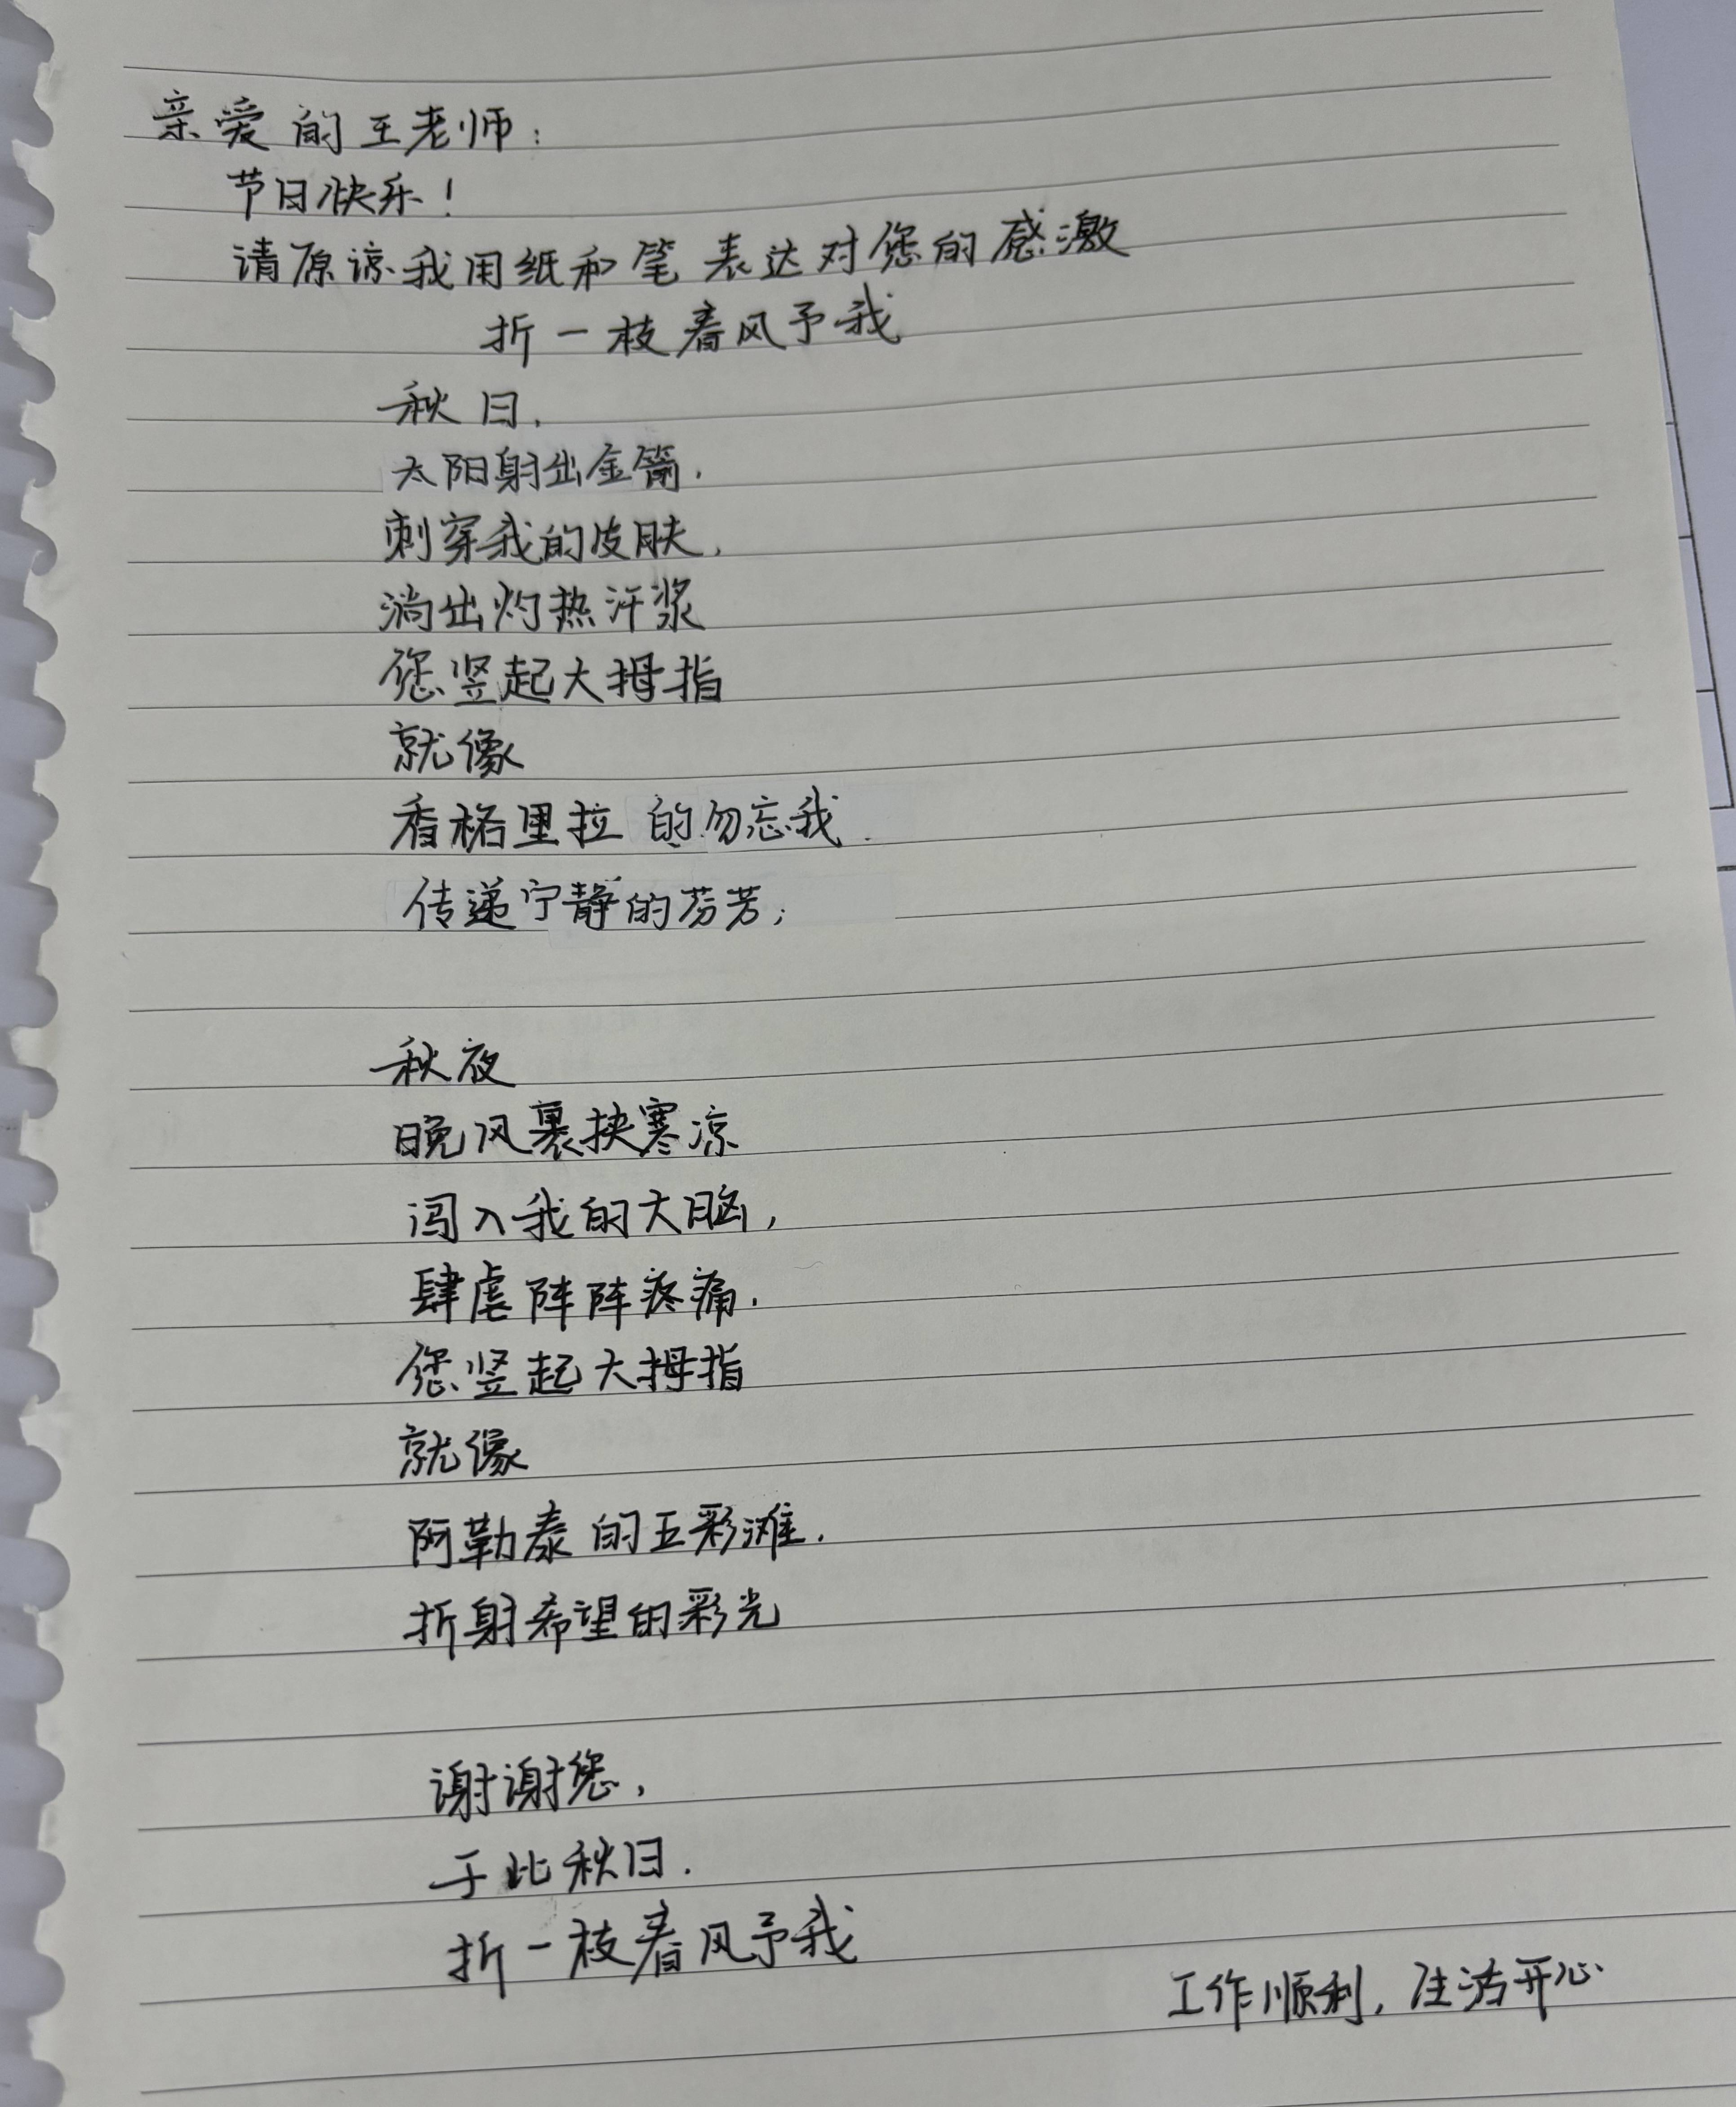 亲爱的王老师：
节日快乐！
请原谅我用纸和笔表达对您的感激
折一枝春风予我
秋日，
太阳射出金箭，
刺穿我的皮肤，
淌出灼热汗浆
您竖起大拇指
就像
香格里拉的勿忘我，
传递宁静的芬芳；
秋夜
晚风裹挟寒凉
闯入我的大脑，
肆虐阵阵疼痛，
您竖起大拇指
就像
阿勒泰的五彩滩，
折射希望的彩光
谢谢您，
于此秋日，
折一枝春风予我
工作顺利，生活开心